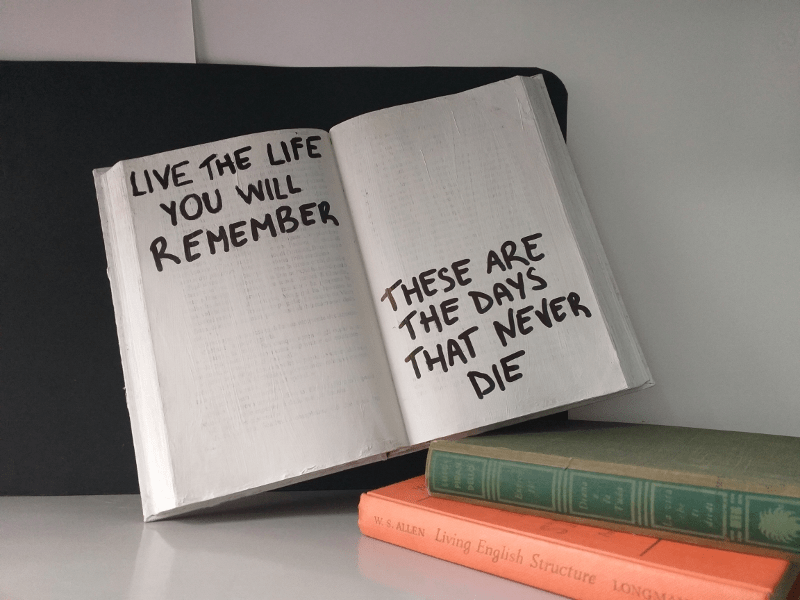 LIVE THE LIFE
YOU WILL
REMEMBER
THESE ARE
THE DAYS
THAT NEVER
DIE
W. S. ALLEN Living English Structure LONGMAN